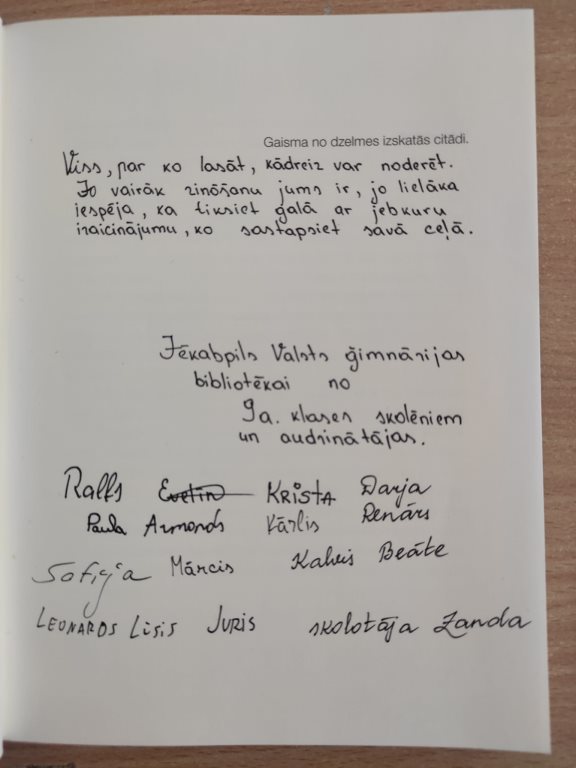 Gaisma no dzelmes izskatās citādi.
Viss, par ko lasāt, kādreiz var noderēt.
Jo vairāk zināšanu jums ir, jo lielāka
iespēja, ka tiksiet galā ar jebkuru
izaicinājumu, ko sastapsiet savā ceļā.
Jēkabpils Valsts ģimnāzijas
bibliotēkai no
9a. klases skolēniem
un audzinātājas.
Ralfs Evelīn Krista Darja
Paula Armands Kārlis Renārs
Sofija Mārcis Kalvis Beāte
LEONARDS Līsis JURIS skolotāja Žanda